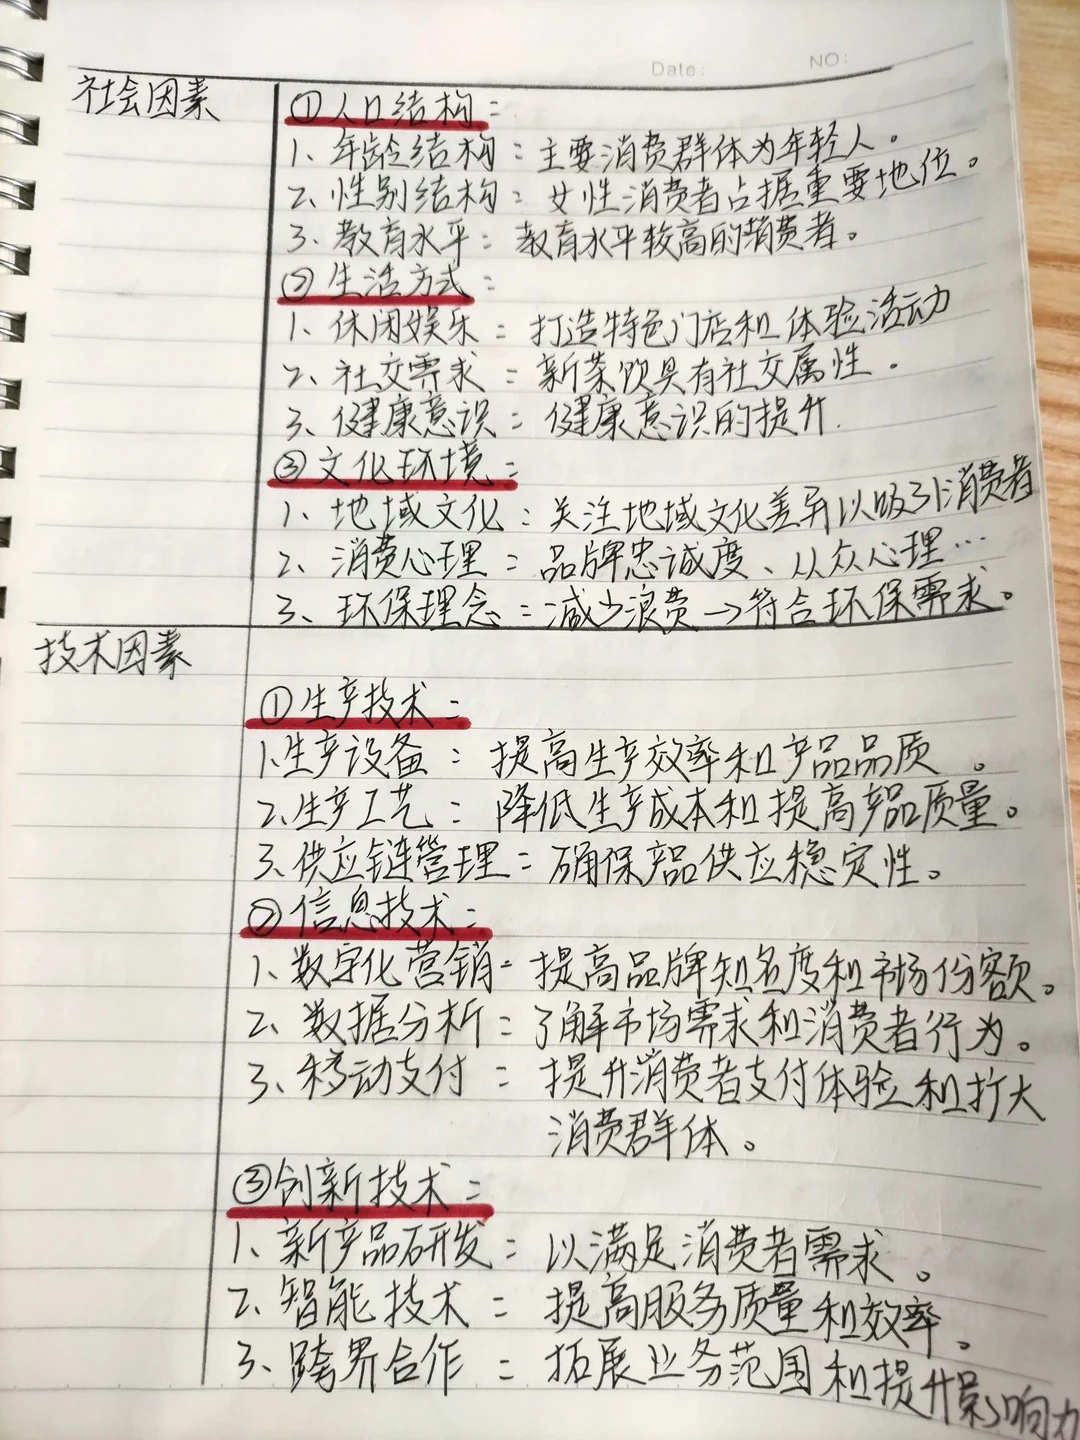 Date:
NO:
社会因素
①人口结构：
1、年龄结构：主要消费群体为年轻人。
2、性别结构：女性消费者占据重要地位。
3、教育水平：教育水平较高的消费者。
②生活方式：
1、休闲娱乐：打造特色门店和体验活动
2、社交需求：新茶饮具有社交属性。
3、健康意识：健康意识的提升.
③文化环境：
1、地域文化：关注地域文化差异以吸引消费者
2、消费心理：品牌忠诚度、从众心理…
3、环保理念：减少浪费→符合环保需求。
技术因素
①生产技术：
1.生产设备：提高生产效率和产品品质。
2.生产工艺：降低生产成本和提高产品质量。
3.供应链管理：确保产品供应稳定性。
②信息技术：
1、数字化营销：提高品牌知名度和市场份额。
2、数据分析：了解市场需求和消费者行为。
3、移动支付：提升消费者支付体验和扩大
消费群体。
③创新技术：
1、新产品研发：以满足消费者需求。
2、智能技术：提高服务质量和效率。
3、跨界合作：拓展业务范围和提升影响力